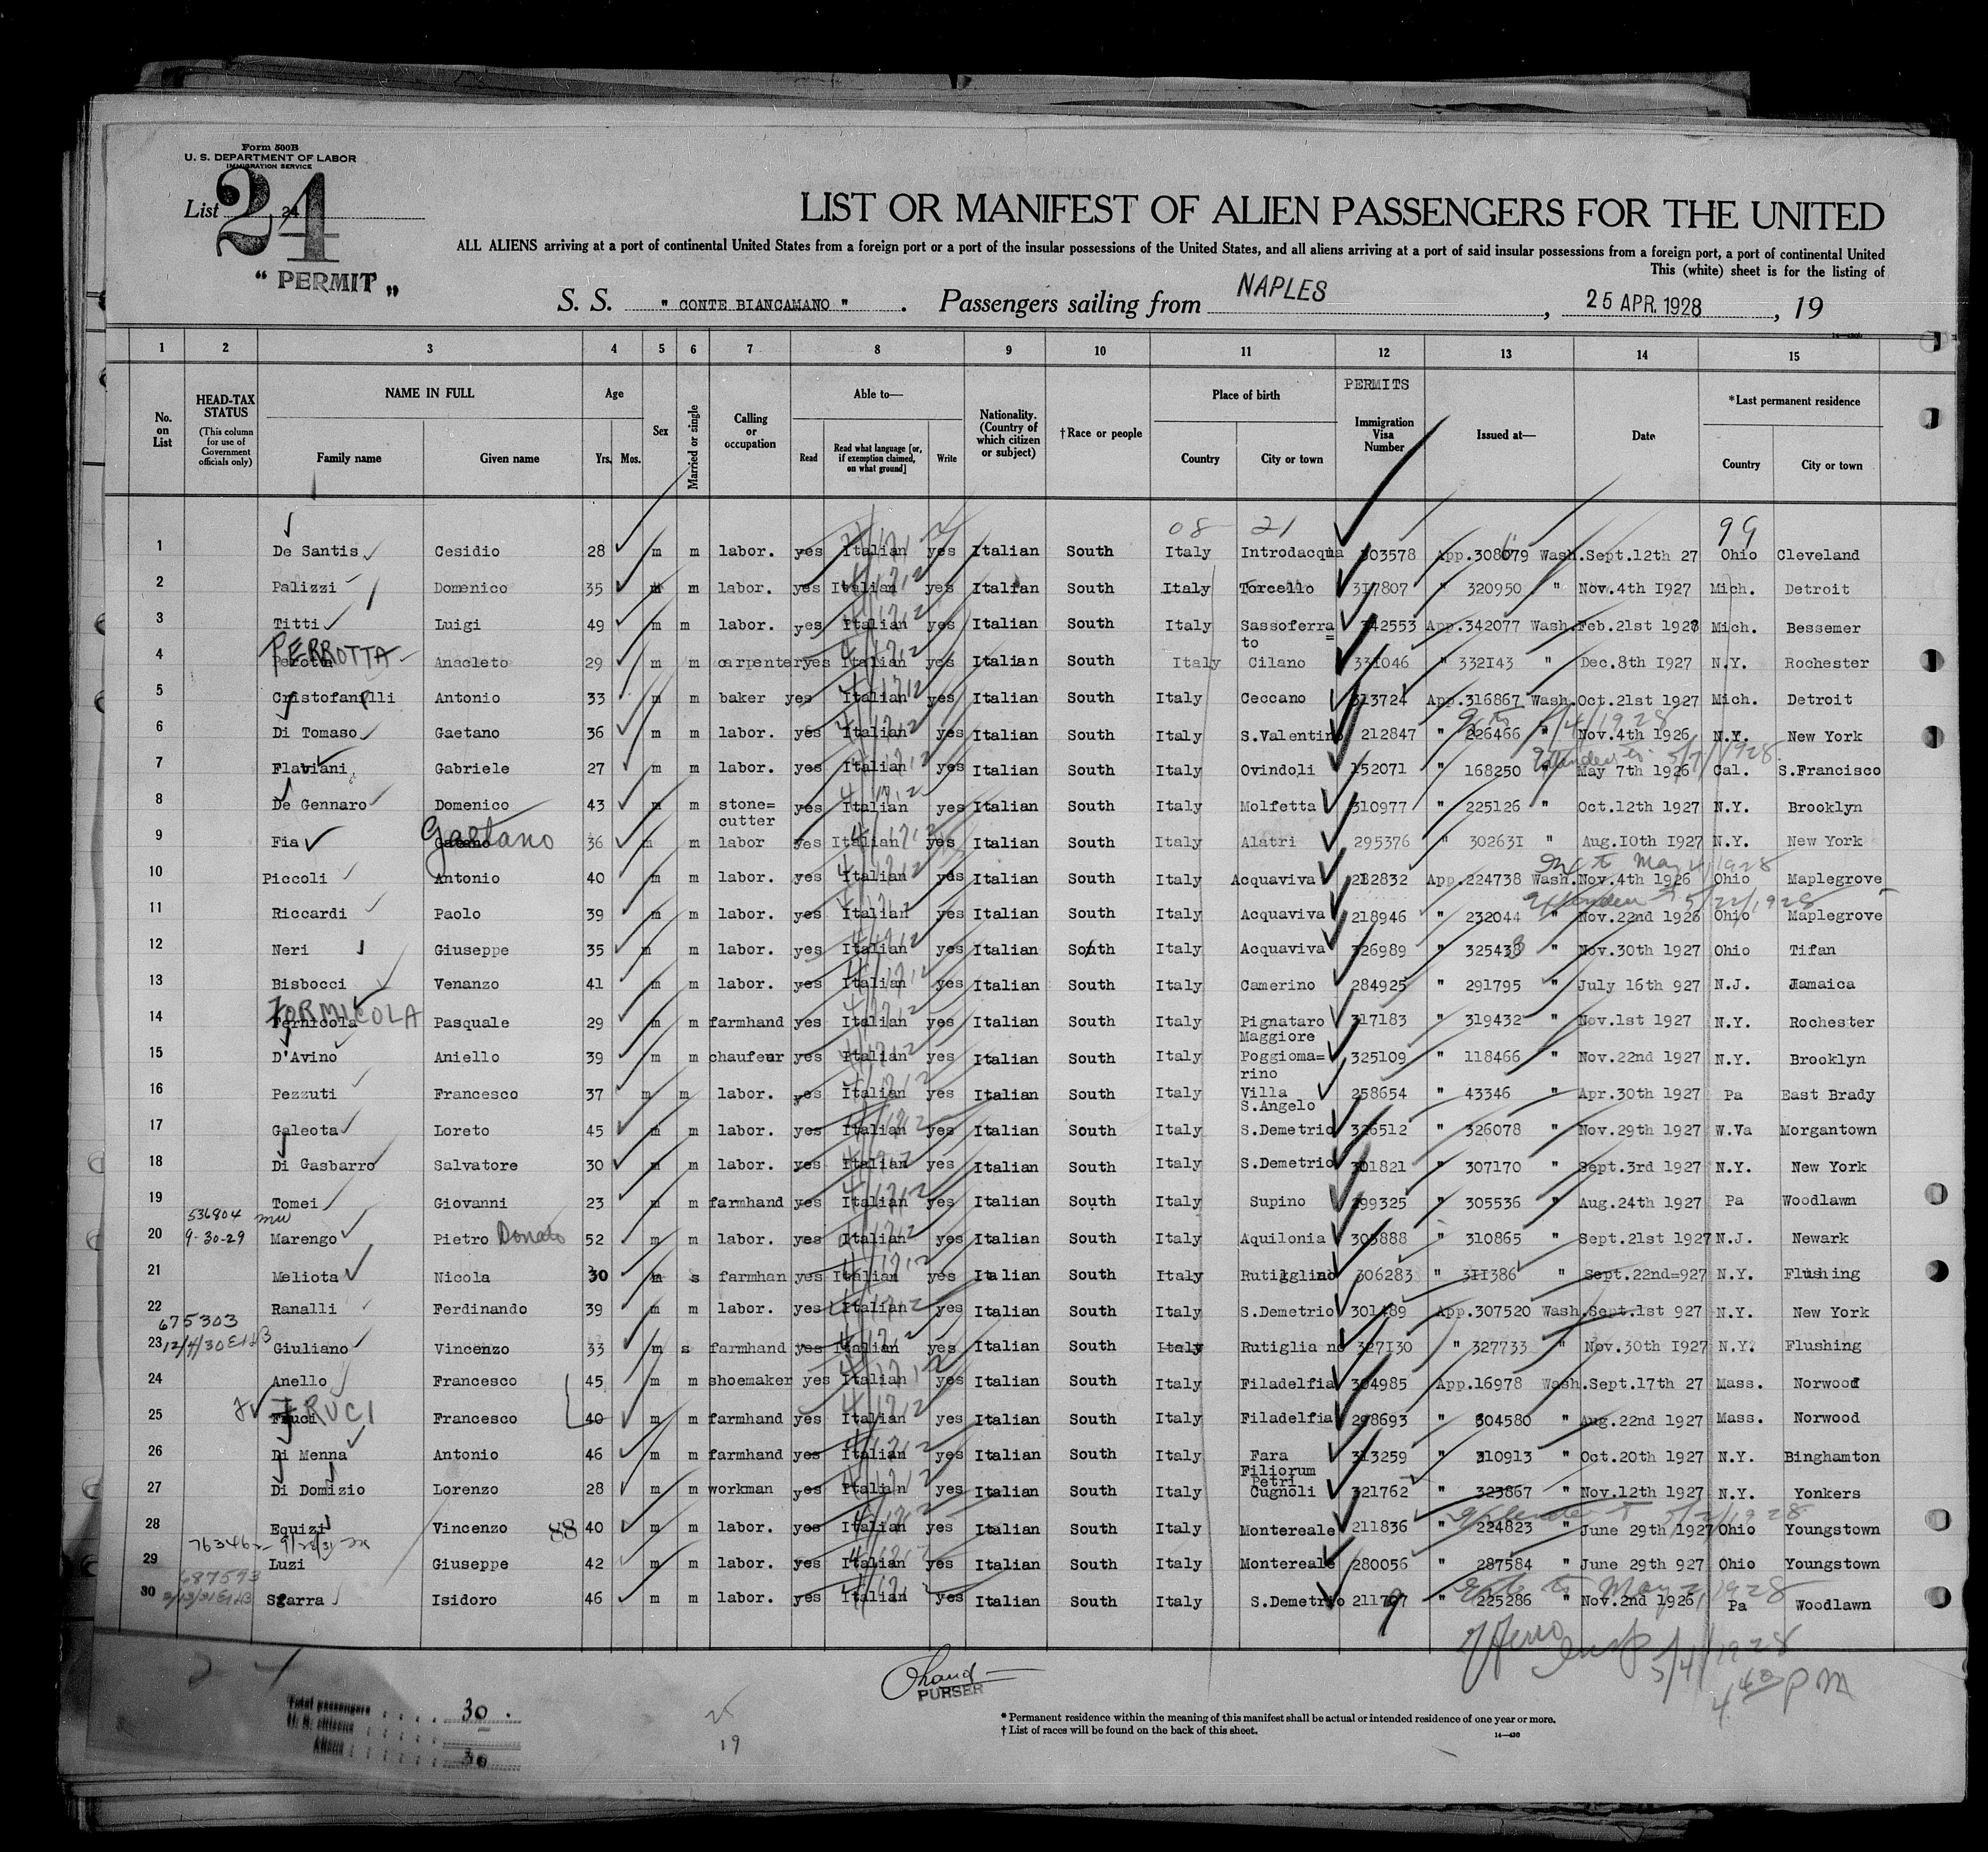 Form 500B
U. S. DEPARTMENT OF LABOR
IMMIGRATION SERVICE
List 24
24
" PERMIT "
LIST OR MANIFEST OF ALIEN PASSENGERS FOR THE UNITED
ALL ALIENS arriving at a port of continental United States from a foreign port or a port of the insular possessions of the United States, and all aliens arriving at a port of said insular possessions from a foreign port, a port of continental United
This (white) sheet is for the listing of
S. S. " CONTE BIANCAMANO " . Passengers sailing from NAPLES , 25 APR. 1928 , 19
1 2 3 4 5 6 7 8 9 10 11 12 13 14 15
No. on List
HEAD-TAX STATUS (This column for use of Government officials only)
NAME IN FULL Family name Given name
Age Yrs. Mos.
Sex
Married or single
Calling or occupation
Able to— Read Read what language [or, if exemption claimed, on what ground] Write
Nationality. (Country of which citizen or subject)
†Race or people
Place of birth Country City or town
PERMITS
Immigration Visa Number
Issued at—
Date
*Last permanent residence Country City or town
08 21 99
1 De Santis Cesidio 28 m m labor. yes Italian yes Italian South Italy Introdacqua 303578 App.308079 Wash.Sept.12th 27 Ohio Cleveland
2 Palizzi Domenico 35 m m labor. yes Italian yes Italian South Italy Torcello 317807 " 320950 " Nov.4th 1927 Mich. Detroit
3 Titti Luigi 49 m m labor. yes Italian yes Italian South Italy Sassoferra=to 342553 App.342077 Wash.Feb.21st 1928 Mich. Bessemer
PERROTTA
4 Anacleto 29 m m carpenter yes Italian yes Italian South Italy Cilano 331046 " 332143 " Dec.8th 1927 N.Y. Rochester
5 Cristofanilli Antonio 33 m m baker yes Italian yes Italian South Italy Ceccano 313724 App.316867 Wash.Oct.21st 1927 Mich. Detroit
6 Di Tomaso Gaetano 36 m m labor. yes Italian yes Italian South Italy S.Valentino 212847 " 226466 " Nov.4th 1926 N.Y. New York
7 Flaviani Gabriele 27 m m labor. yes Italian yes Italian South Italy Ovindoli 152071 " 168250 " May 7th 1926 Cal. S.Francisco
8 De Gennaro Domenico 43 m m stone=cutter yes Italian yes Italian South Italy Molfetta 310977 " 225126 " Oct.12th 1927 N.Y. Brooklyn
9 Fia Gaetano 36 m m labor yes Italian yes Italian South Italy Alatri 295376 " 302631 " Aug.10th 1927 N.Y. New York
10 Piccoli Antonio 40 m m labor. yes Italian yes Italian South Italy Acquaviva 212832 App.224738 Wash.Nov.4th 1926 Ohio Maplegrove
11 Riccardi Paolo 39 m m labor. yes Italian yes Italian South Italy Acquaviva 218946 " 232044 " Nov.22nd 1926 Ohio Maplegrove
12 Neri Giuseppe 35 m m labor. yes Italian yes Italian South Italy Acquaviva 326989 " 325438 " Nov.30th 1927 Ohio Tifan
13 Bisbocci Venanzo 41 m m labor. yes Italian yes Italian South Italy Camerino 284925 " 291795 " July 16th 927 N.J. Jamaica
FORMICOLA
14 Fernicola Pasquale 29 m m farmhand yes Italian yes Italian South Italy Pignataro Maggiore 317183 " 319432 " Nov.1st 1927 N.Y. Rochester
15 D'Avino Aniello 39 m m chaufeur yes Italian yes Italian South Italy Poggioma=rino 325109 " 118466 " Nov.22nd 1927 N.Y. Brooklyn
16 Pezzuti Francesco 37 m m labor. yes Italian yes Italian South Italy Villa S.Angelo 258654 " 43346 " Apr.30th 1927 Pa East Brady
17 Galeota Loreto 45 m m labor. yes Italian yes Italian South Italy S.Demetrio 326512 " 326078 " Nov.29th 1927 W.Va Morgantown
18 Di Gasbarro Salvatore 30 m m labor. yes Italian yes Italian South Italy S.Demetrio 301821 " 307170 " Sept.3rd 1927 N.Y. New York
19 Tomei Giovanni 23 m m farmhand yes Italian yes Italian South Italy Supino 299325 " 305536 " Aug.24th 1927 Pa Woodlawn
536804
20 9-30-29 Marengo Pietro Donato 52 m m labor. yes Italian yes Italian South Italy Aquilonia 303888 " 310865 " Sept.21st 1927 N.J. Newark
21 Meliota Nicola 30 m s farmhan yes Italian yes Italian South Italy Rutigglino 306283 " 311386 " Sept.22nd=927 N.Y. Flushing
22 Ranalli Ferdinando 39 m m labor. yes Italian yes Italian South Italy S.Demetrio 301489 App.307520 Wash.Sept.1st 927 N.Y. New York
675303
23 12/4/30 Giuliano Vincenzo 33 m s farmhand yes Italian yes Italian South Italy Rutigliano 327130 " 327733 " Nov.30th 1927 N.Y. Flushing
24 Anello Francesco 45 m m shoemaker yes Italian yes Italian South Italy Filadelfia 304985 App.16978 Wash.Sept.17th 27 Mass. Norwood
25 FRUCI Francesco 40 m m farmhand yes Italian yes Italian South Italy Filadelfia 298693 " 304580 " Aug.22nd 1927 Mass. Norwood
26 Di Menna Antonio 46 m m farmhand yes Italian yes Italian South Italy Fara Filiorum Petri 313259 " 310913 " Oct.20th 1927 N.Y. Binghamton
27 Di Domizio Lorenzo 28 m m workman yes Italian yes Italian South Italy Cugnoli 321762 " 323867 " Nov.12th 1927 N.Y. Yonkers
28 Equizi Vincenzo 88 40 m m labor. yes Italian yes Italian South Italy Montereale 211836 " 224823 " June 29th 1927 Ohio Youngstown
29 Luzi Giuseppe 42 m m labor. yes Italian yes Italian South Italy Montereale 280056 " 287584 " June 29th 927 Ohio Youngstown
687593
30 Sfarra Isidoro 46 m m labor. yes Italian yes Italian South Italy S.Demetrio 211797 " 225286 " Nov.2nd 1926 Pa Woodlawn
5/4/1928
4 40 PM
PURSER
Total passengers 30
U. S. citizens
Aliens 30
25
19
* Permanent residence within the meaning of this manifest shall be actual or intended residence of one year or more.
† List of races will be found on the back of this sheet.
14—430